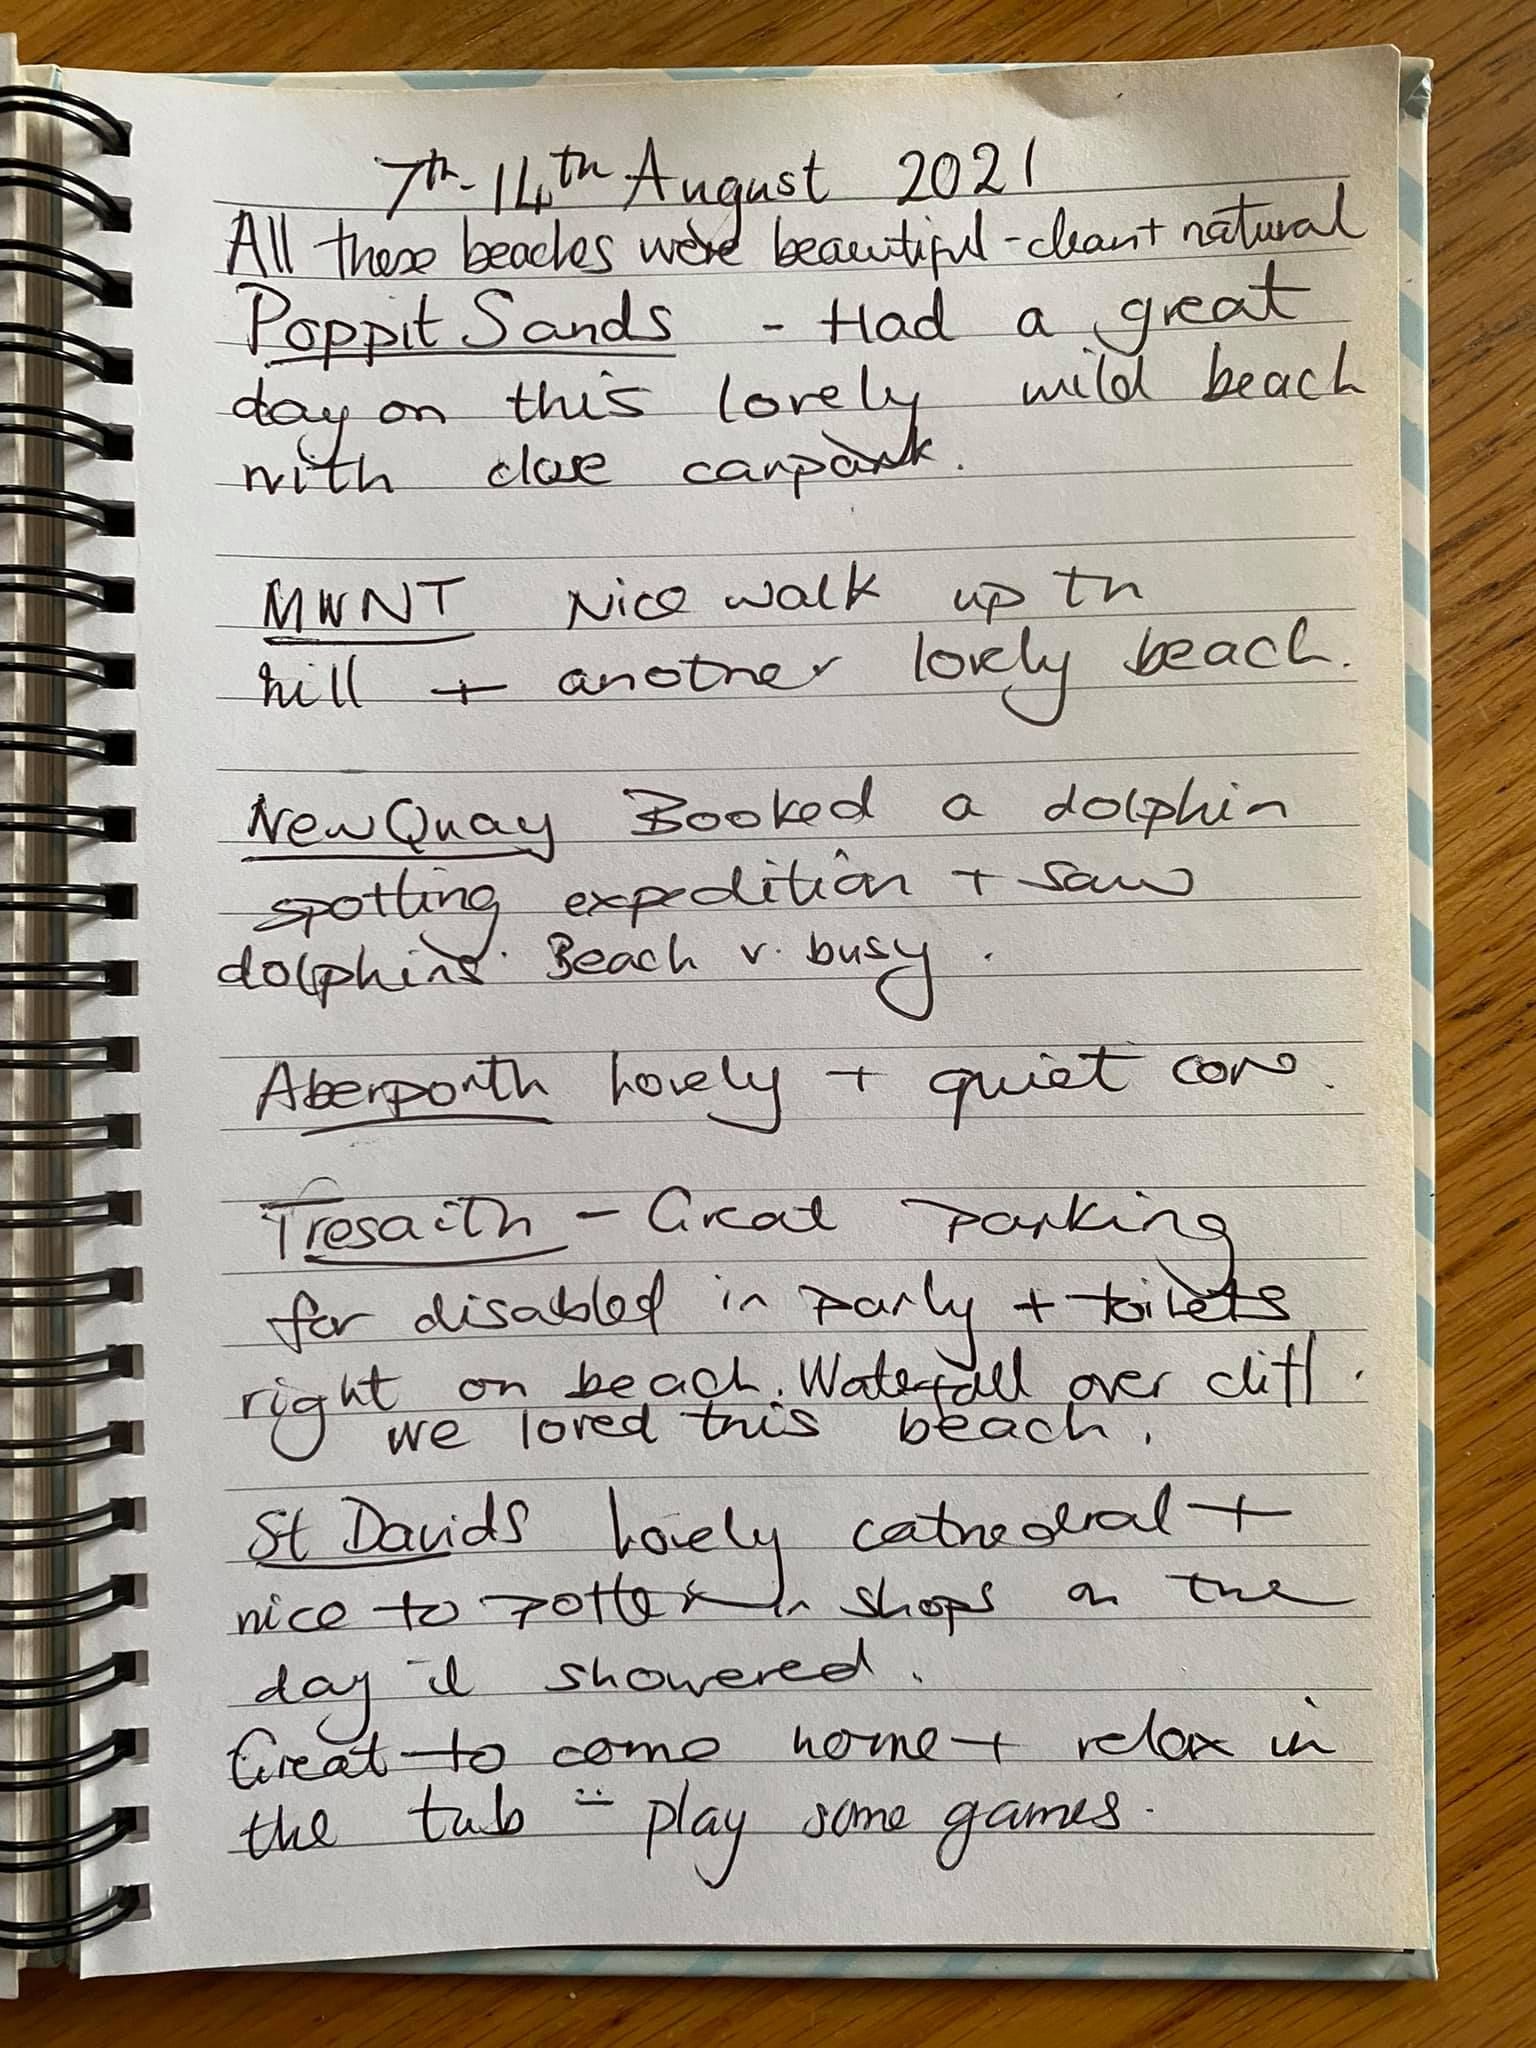 7th-14th August 2021
All these beaches were beautiful - clean + natural
Poppit Sands - Had a great
day on this lovely wild beach
with close carpark.
MWNT Nice walk up th
hill + another lovely beach.
New Quay Booked a dolphin
spotting expedition + saw
dolphins. Beach v. busy.
Aberporth Lovely + quiet cove.
Tresaith - Great parking
for disabled in party + toilets
right on beach. Waterfall over cliff.
we loved this beach.
St Davids Lovely cathedral +
nice to potter in shops on the
day it showered.
Great to come home + relax in
the tub play some games.